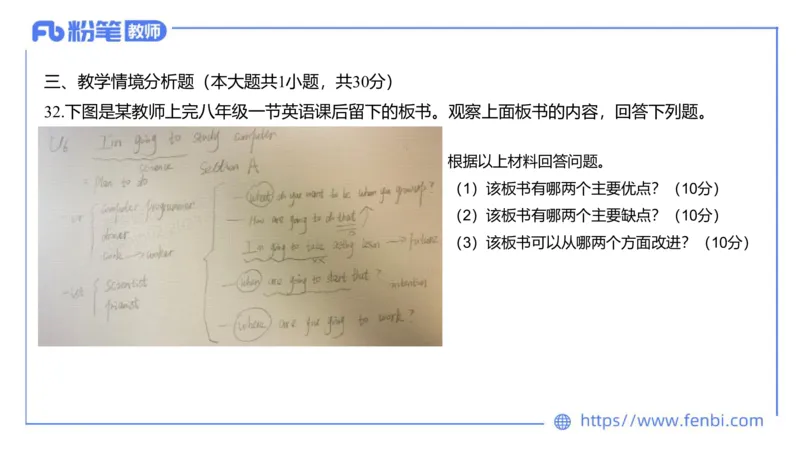 粉笔教师
三、教学情境分析题（本大题共1小题，共30分）
32.下图是某教师上完八年级一节英语课后留下的板书。观察上面板书的内容，回答下列题。
U6 I'm going to study computer
science Section A
= Plan to do
-er computer programmer
driver
work → worker
-ist scientist
pianist
- What do you want to be when you grow up?
- How are going to do that
I'm going to take acting lesson → future
- When are going to start that? intention
- Where are you going to work?
根据以上材料回答问题。
（1）该板书有哪两个主要优点？（10分）
（2）该板书有哪两个主要缺点？（10分）
（3）该板书可以从哪两个方面改进？（10分）
https//www.fenbi.com